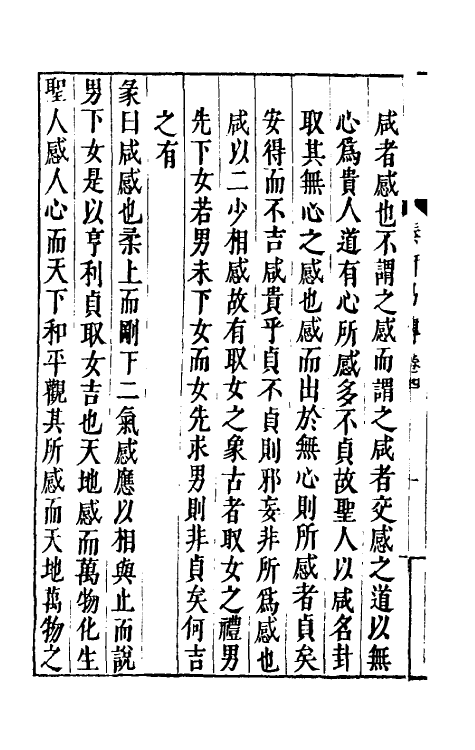 咸者感也不謂之感而謂之咸者交感之道以無
心爲貴人道有心所感多不貞故聖人以咸名卦
取其無心之感也感而出於無心則所感者貞矣
安得而不吉咸貴乎貞不貞則邪妄非所爲感也
咸以二少相感故有取女之象古者取女之禮男
先下女若男未下女而女先求男則非貞矣何吉
之有
彖曰咸感也柔上而剛下二氣感應以相與止而說
男下女是以亨利貞取女吉也天地感而萬物化生
聖人感人心而天下和平觀其所感而天地萬物之
卷四